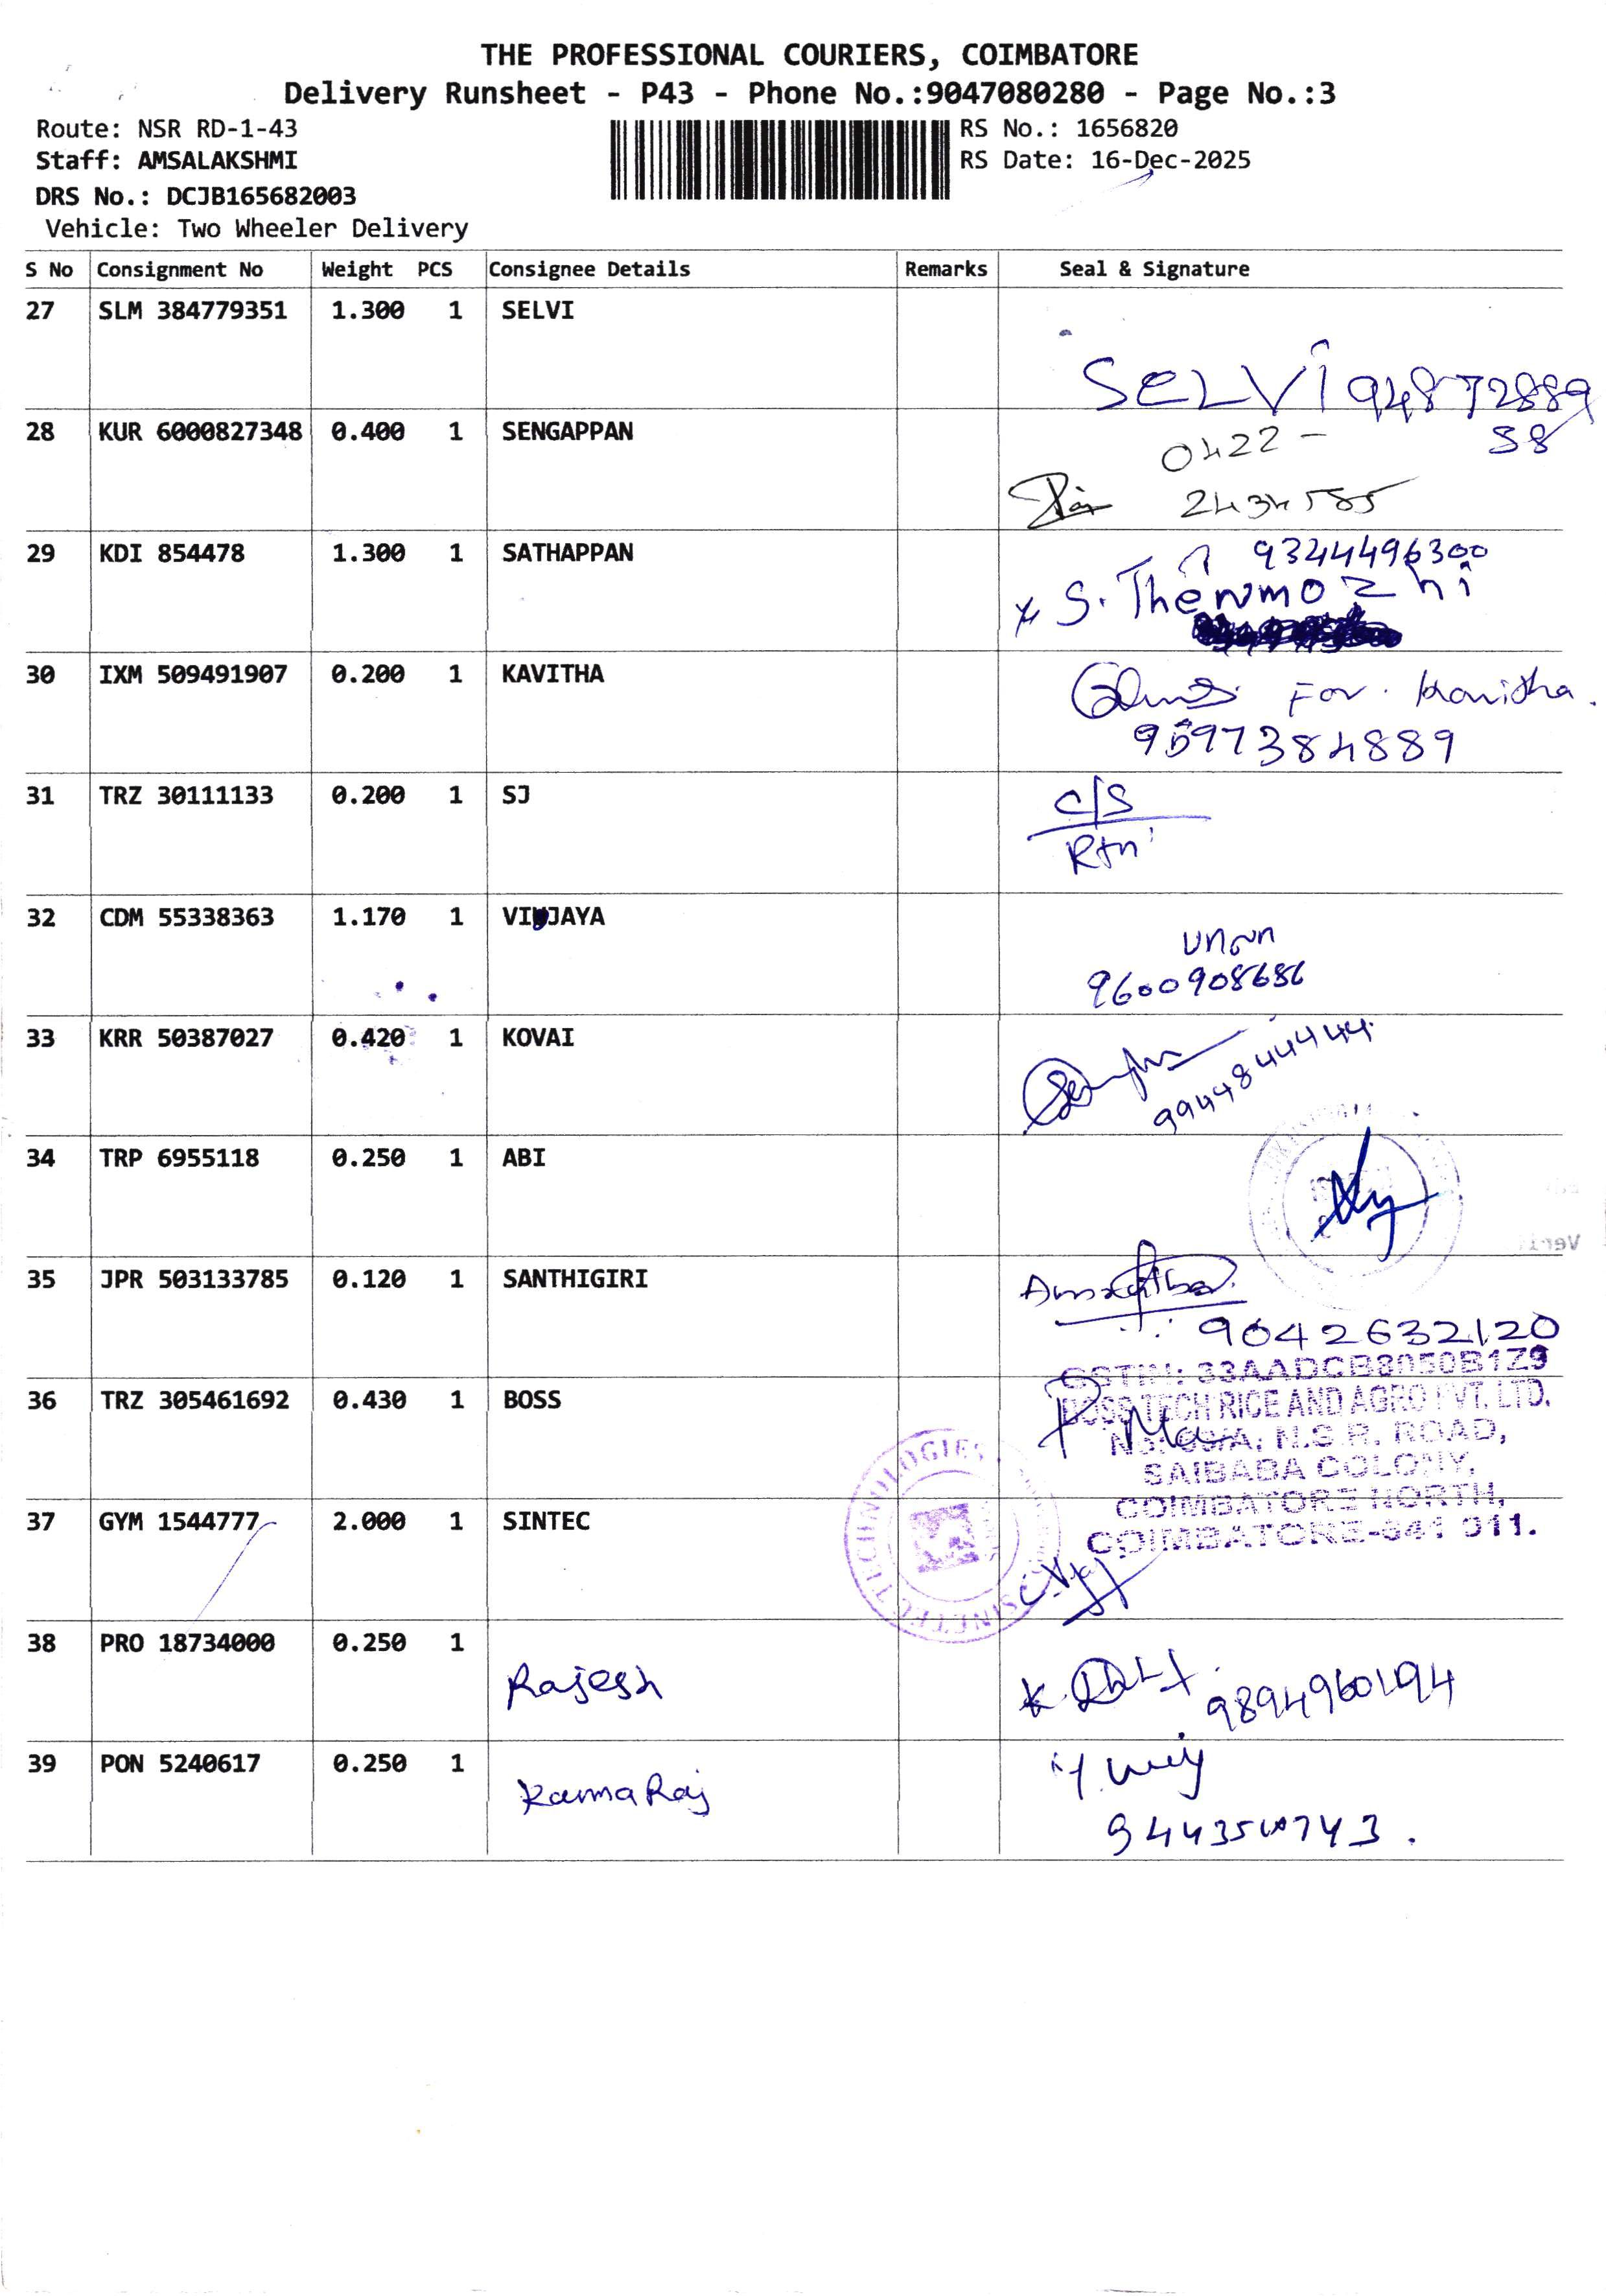 THE PROFESSIONAL COURIERS, COIMBATORE
Delivery Runsheet - P43 - Phone No.:9047080280 - Page No.:3
Route: NSR RD-1-43
RS No.: 1656820
Staff: AMSALAKSHMI
RS Date: 16-Dec-2025
DRS No.: DCJB165682003
Vehicle: Two Wheeler Delivery
S No Consignment No Weight PCS Consignee Details Remarks Seal & Signature
27 SLM 384779351 1.300 1 SELVI
SELVI 94872889
38
28 KUR 6000827348 0.400 1 SENGAPPAN
0422 -
2434585
29 KDI 854478 1.300 1 SATHAPPAN
9344496300
S. Thenmozhi
30 IXM 509491907 0.200 1 KAVITHA
For. kavitha.
9597384889
31 TRZ 30111133 0.200 1 SJ
C/S
Rtn
32 CDM 55338363 1.170 1 VIJAYA
பாலா
9600908686
33 KRR 50387027 0.420 1 KOVAI
9944844444
34 TRP 6955118 0.250 1 ABI
35 JPR 503133785 0.120 1 SANTHIGIRI
9042632120
GSTIN: 33AADCB3050B1Z9
36 TRZ 305461692 0.430 1 BOSS
BOSS TECH RICE AND AGRO PVT. LTD.
N.S.R. ROAD,
SAIBABA COLONY,
COIMBATORE NORTH,
COIMBATORE-641 011.
37 GYM 1544777 2.000 1 SINTEC
SINTEC TECHNOLOGIES
38 PRO 18734000 0.250 1
Rajesh
9894960194
39 PON 5240617 0.250 1
KamaRaj